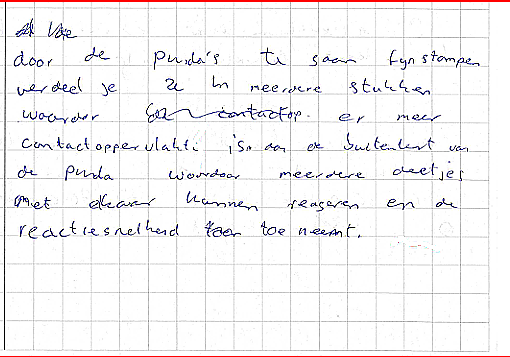 door de punda's te gaan fynstampen
verdeel je ze in meerdere stukken
waardoor er meer
contactoppervlakte is aan de buitenkant van
de punda waardoor meerdere deeltjes
met elkaar kunnen reageren en de
reactiesnelheid toe neemt.